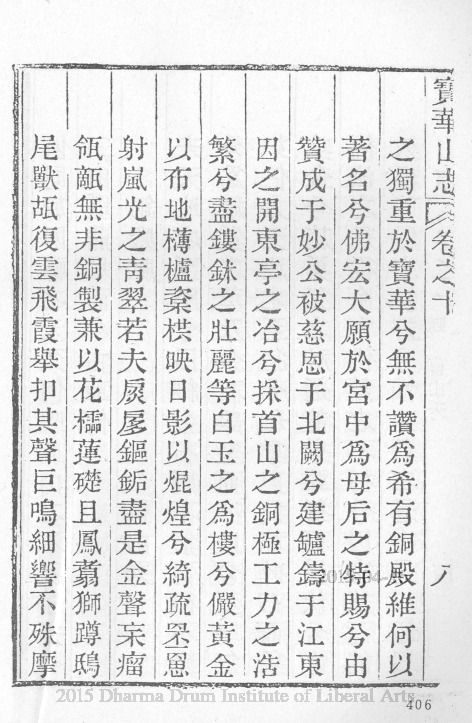 寶華山志 卷之十 八
之獨重於寶華兮無不讚為希有銅殿維何以
著名兮佛宏大願於宮中為母后之特賜兮由
贊成于妙公被慈恩于北闕兮建罏鑄于江東
因之開東亭之冶兮採首山之銅極工力之浩
繁兮盡鏤銇之壯麗等白玉之為樓兮儼黃金
以布地欂櫨楶栱映日影以焜煌兮綺疏罘罳
射嵐光之青翠若夫扆扅鏂鉐盡是金聲宎瘤
瓴甋無非銅製兼以花檽蓮礎且鳳翥獅蹲鴟
尾獸瓳復雲飛霞舉扣其聲巨鳴細響不殊摩
406
2015 Dharma Drum Institute of Liberal Arts